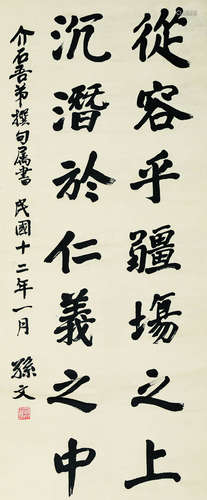 從容乎疆場之上
沉潛於仁義之中
介石吾弟撰句属書 民國十二年一月 孫文